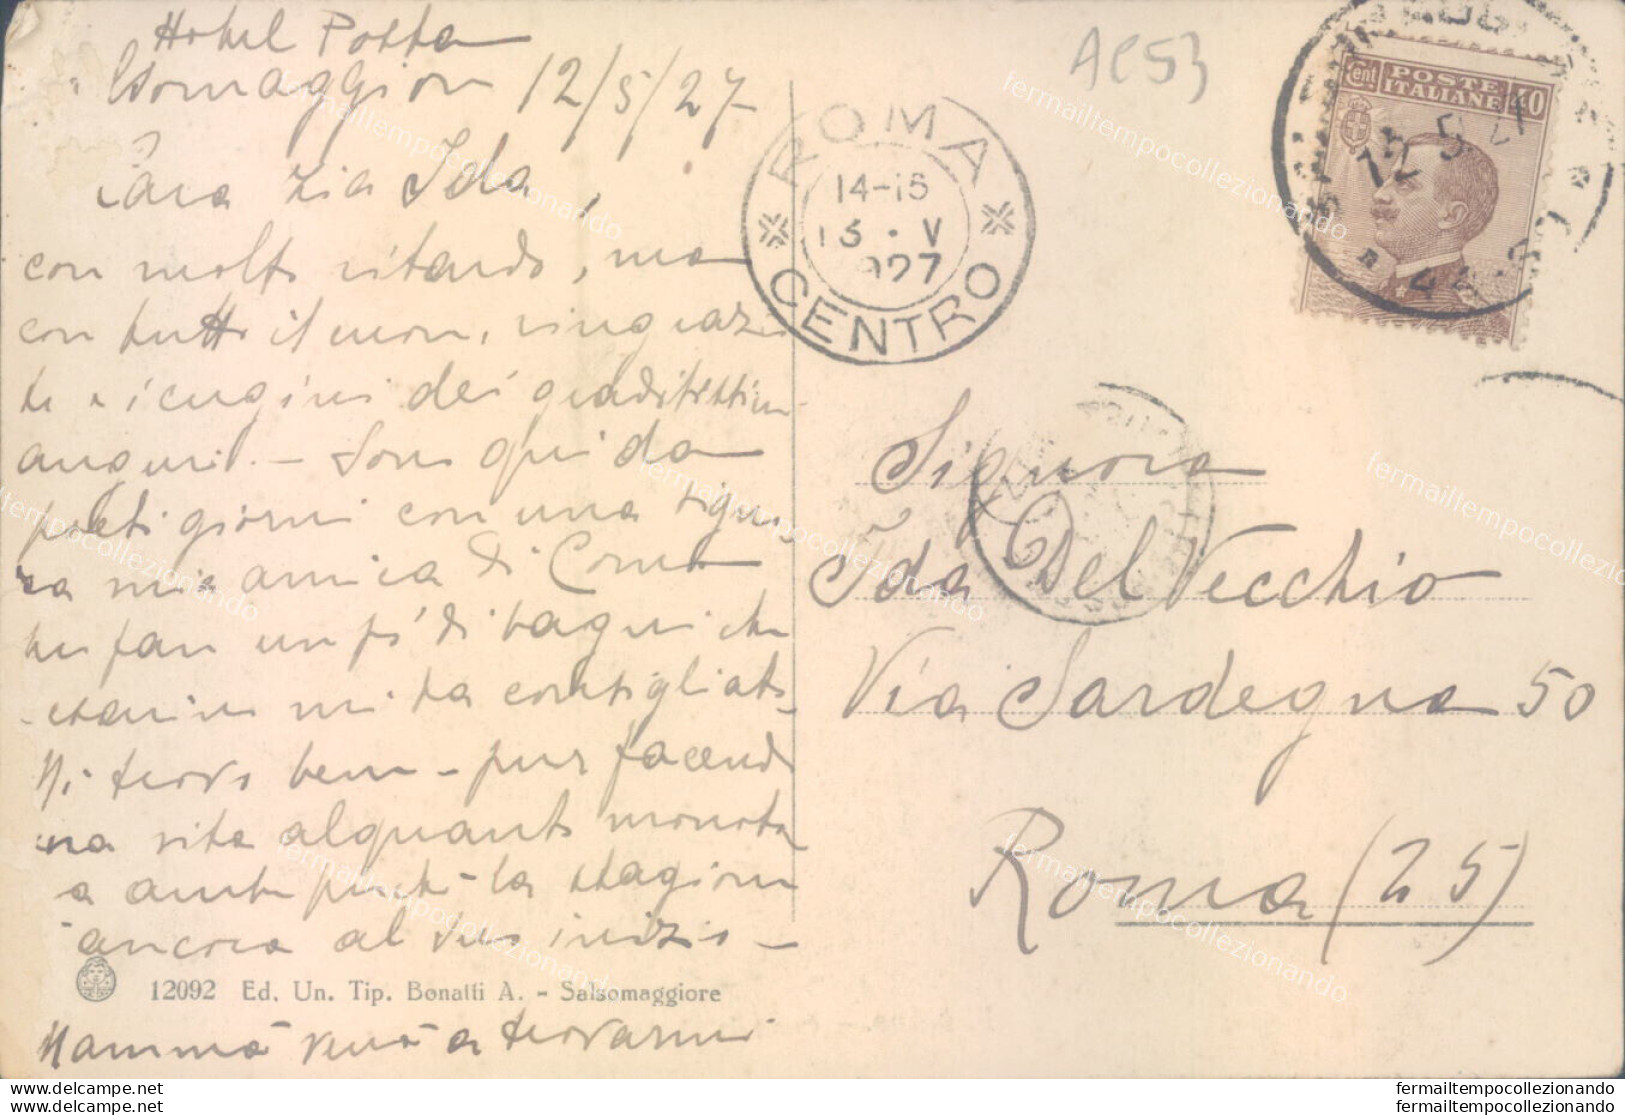 Hotel Posta
Salsomaggiore 12/5/27
Cara zia Ida,
con molto ritardo, ma
con tutto il cuore, ringrazio
te e i cugini dei graditissimi
auguri. - Sono qui da
parecchi giorni con una signo
ra mia amica di Como
per fare un po' di bagni che
mi ha consigliato
Mi trovo bene - pur facendo
una vita alquanto monoto
na anche perchè la stagione
è ancora al suo inizio -
Mamma verrà a trovarmi
12092 Ed. Un. Tip. Bonatti A. - Salsomaggiore
AC53
ROMA
14-15
13 · V
1927
CENTRO
Cent. POSTE 40
ITALIANE
12 5 27
Signora
Ida Del Vecchio
Via Sardegna 50
Roma (25)
fermailtempocollezionando
fermailtempocollezionando
fermailtempocollezionando
fermailtempocollezionando